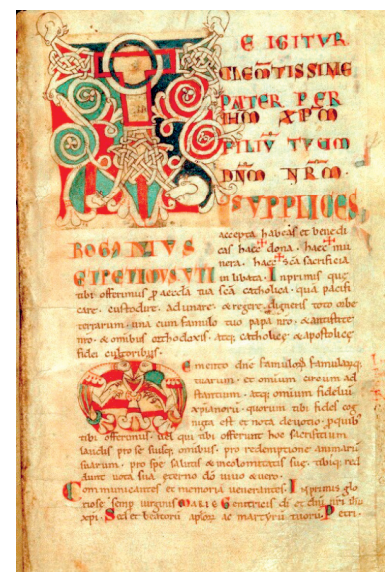 TE IGITVR
CLEM̄TISSIME
PATER PER
IHM̄ XPM̄
FILIŪ TVŪM
DN̄M N̄RM̄
SVPPLICES
ROGAMVS
ET PETIMVS VTI
accepta habeas et benedi
cas haec dona. haec mu
nera. haec sc̄a sacrificia
inlibata. Inprimis que
tibi offerimus p̄ aeccl̄a tua sc̄a catholica. qua pacifi
care. custodire. adunare. & regere digneris toto orbe
terrarum. una cum famulo tuo papa nr̄o. & antistite
nr̄o & omibus orthodoxis. atq; catholicę & apostolicę
fidei cultoribus.
Memento dn̄e famulorū famularūq;
tuarum. et omium circum ad
stantium. atq; omium fideliū
xp̄ianorū. quorum tibi fides cog
nita est et nota devotio. p quib
tibi offerimus. vel qui tibi offerunt hoc sacrificium
laudis pro se suisq; omibus. pro redemptione animarū
suarum. pro spe salutis & incolomitatis suę. tibiq; red
dunt vota sua eterno dō vivo & vero.
Communicantes et memoria venerantes. Inprimis glo
riosę semp virginis MARIE Genitricis dī et dn̄i nr̄i ihū
xp̄i. Sed et beatorū aplor̄. ac martyrū tuorū. Petri.